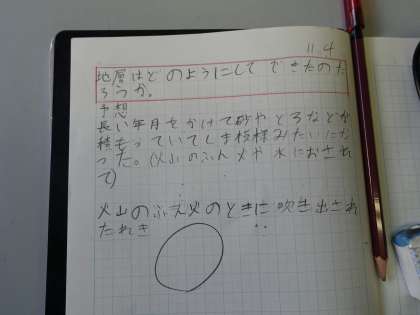 11.4
地層はどのようにしてできたのだ
ろうか。
予想
長い年月をかけて砂やどろなどが
積もっていてしま模様みたいにな
った。(火山のふん火や水におされ
て)
火山のふん火のときに吹き出され
たれき